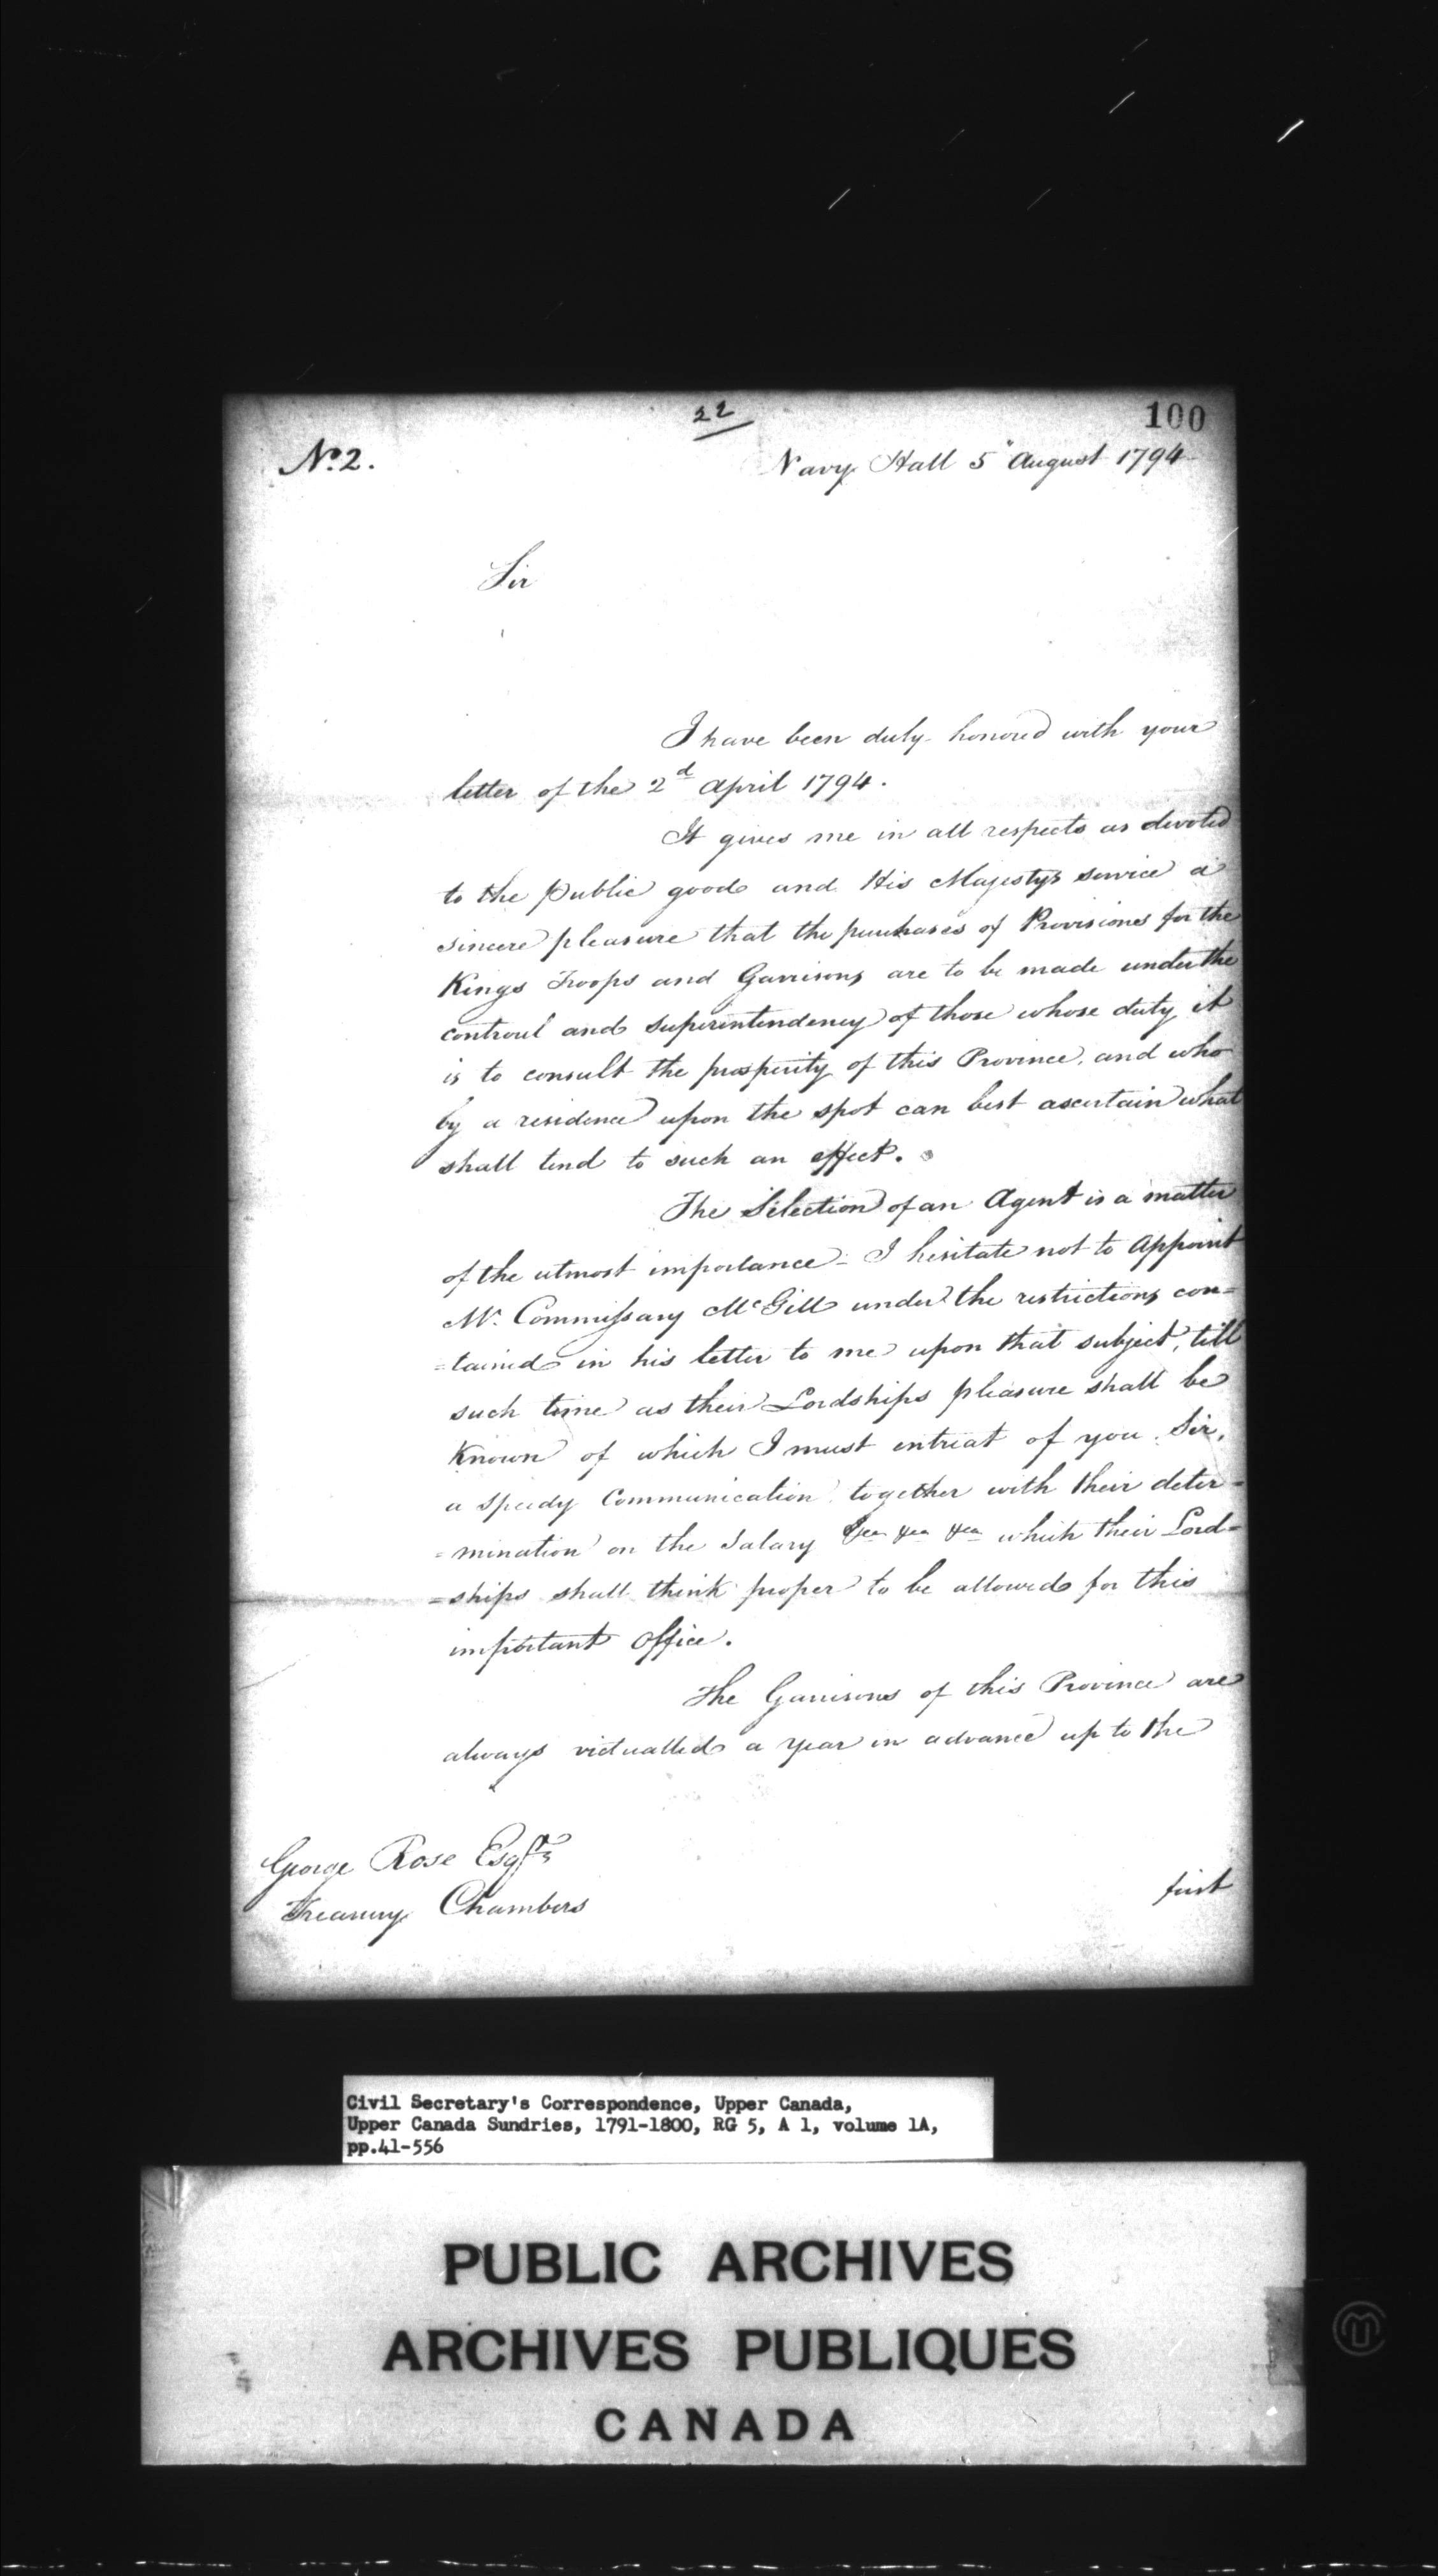 22
100
No. 2.
Navy Hall 5 August 1794
Sir
I have been duly honored with your
letter of the 2d April 1794.
It gives me in all respects as devoted
to the Public good and His Majestys service a
sincere pleasure that the purchases of Provisions for the
Kings Troops and Garrisons are to be made under the
controul and superintendency of those whose duty it
is to consult the prosperity of this Province, and who
by a residence upon the spot can best ascertain what
shall tend to such an effect.
The Selection of an Agent is a matter
of the utmost importance - I hesitate not to Appoint
Mr. Commissary McGill under the restrictions con=
=tained in his letter to me upon that subject, till
such time as their Lordships pleasure shall be
known of which I must intreat of you Sir,
a speedy Communication together with their deter=
=mination on the Salary &ca &ca &ca which their Lord=
=ships shall think proper to be allowed for this
important office.
The Garrisons of this Province are
always victualled a year in advance up to the
first
George Rose Esqr
Treasury Chambers
Civil Secretary's Correspondence, Upper Canada,
Upper Canada Sundries, 1791-1800, RG 5, A 1, volume 1A,
pp.41-556
PUBLIC ARCHIVES
ARCHIVES PUBLIQUES
CANADA